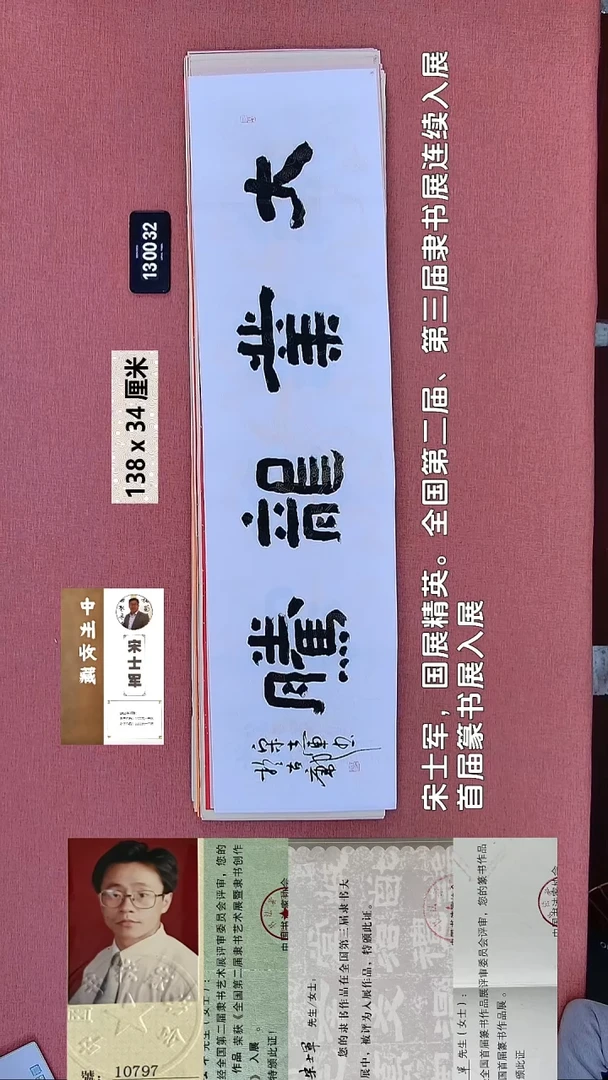 130032
138 x 34 厘米
大業龍騰
宋士軍
宋士军，国展精英。全国第二届、第三届隶书展连续入展
首届篆书展入展
10797
先生（女士）：
经全国第二届隶书艺术展评审委员会评审，您的
作品 荣获《全国第二届隶书艺术展暨隶书创作
》 入展 。
特颁此证！
宋士军 先生/女士，
您的隶书作品在全国第三届隶书大
展中，被评为入展作品，特颁此证。
军 先生（女士）：
全国首届篆书作品展评审委员会评审，您的篆书作品
全国首届篆书作品展。
颁此证